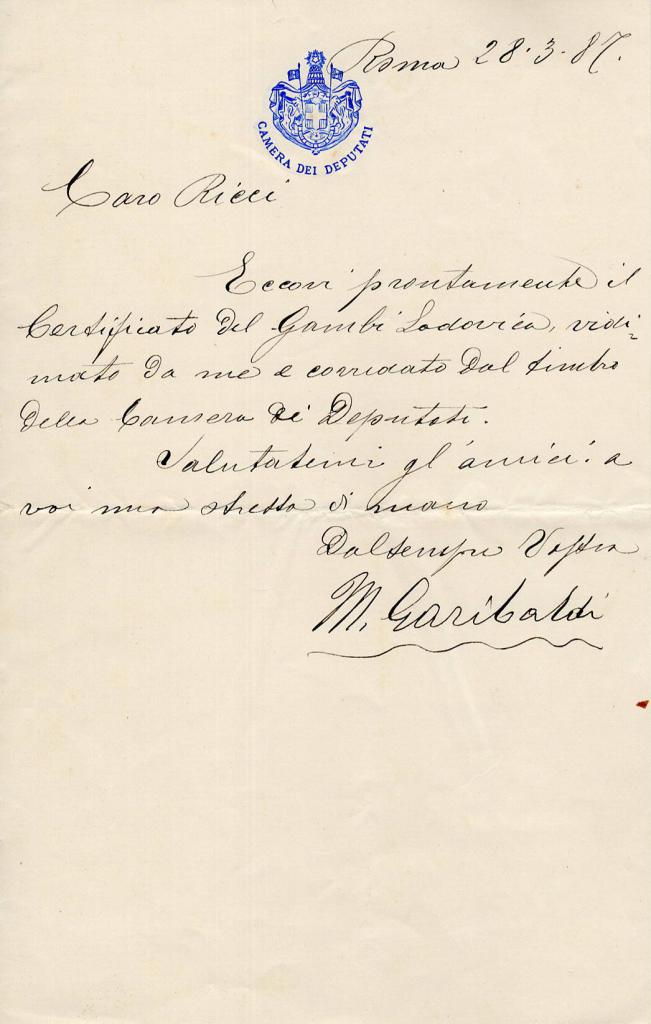 Roma 28.3.87.
CAMERA DEI DEPUTATI
Caro Ricci
Eccovi prontamente il
Certificato del Gambi Lodovico, vidi-
mato da me e corredato dal timbro
della Camera dei Deputati.
Salutatemi gl'amici. a
voi una stretta di mano
Dal sempre Vostro
M. Garibaldi